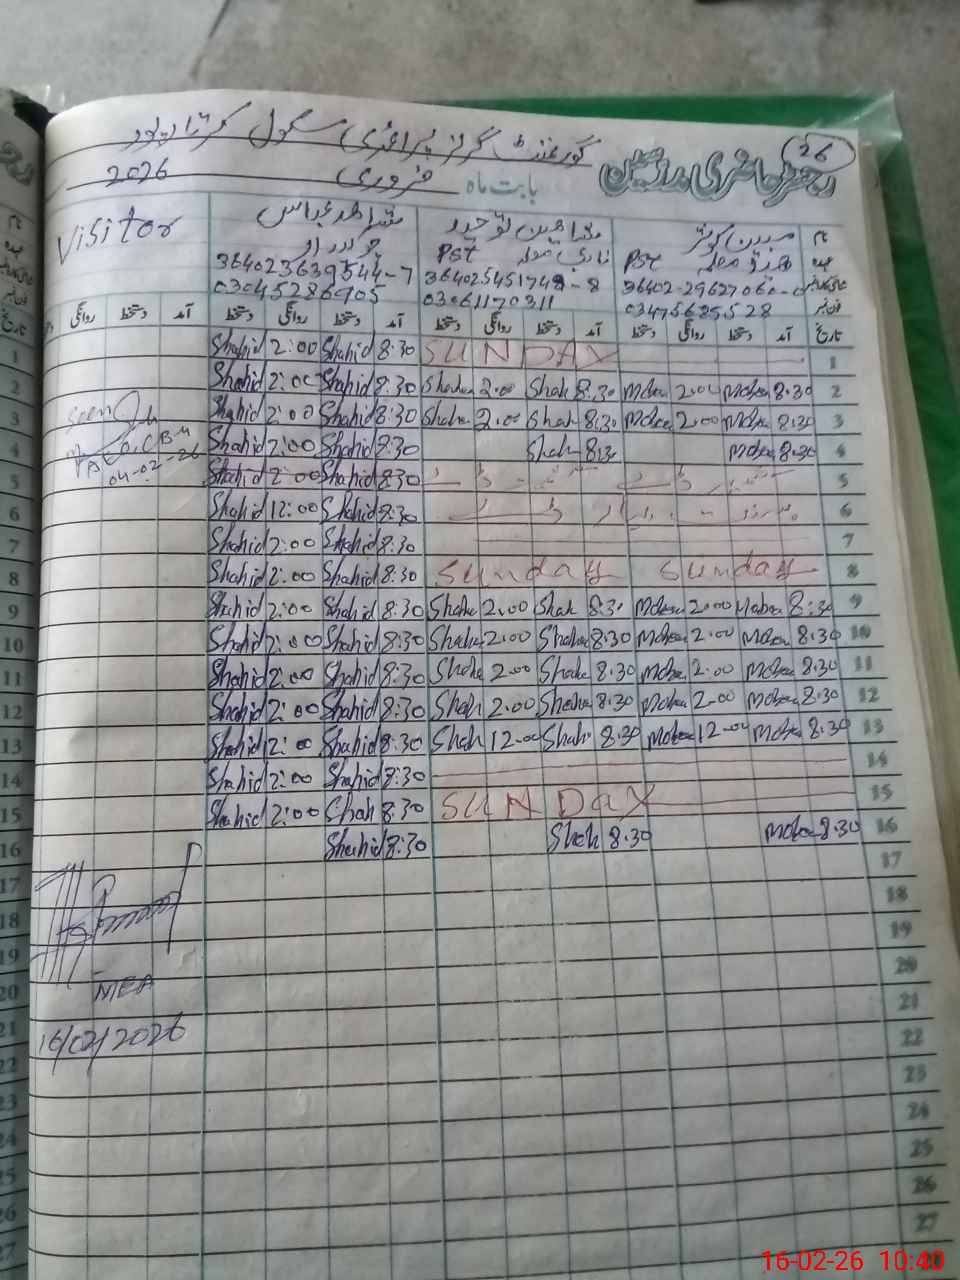 26
رجسٹر حاضری مدرسین
گورنمنٹ گرلز پرائمری سکول کرتارپور
بابت ماہ فروری 2026
نام مبین کوثر شاہین توحید شاہد عباس Visitor
عہدہ PST PST چوکیدار
36402-2962706 364025451748-8 364023639544-7
03061170311 03045286905
تاریخ آمد دستخط روانگی دستخط آمد دستخط روانگی دستخط آمد دستخط روانگی دستخط آمد دستخط روانگی
1 SUNDAY 8:30 Shahid 2:00 Shahid
2 8.30 Moben 2.00 Moben 8.30 Shah 2.00 Shahe 8:30 Shahid 2:00 Shahid
3 8.30 Moben 2.00 Moben 8.30 Shah 2.00 Shahe 8:30 Shahid 2:00 Shahid
4 8.30 Moben 8.30 Shah 8:30 Shahid 2:00 Shahid
Seen
04-02-26
5 8:30 Shahid 2:00 Shahid
6 8:30 Shahid 12:00 Shahid
7 8:30 Shahid 2:00 Shahid
8 Sunday Sunday 8:30 Shahid 2:00 Shahid
9 8:30 Moben 2.00 Moben 8.30 Shah 2.00 Shahe 8:30 Shahid 2:00 Shahid
10 8.30 Moben 2.00 Moben 8.30 Shahe 2.00 Shahe 8:30 Shahid 2:00 Shahid
11 8.30 Moben 2.00 Moben 8.30 Shahe 2.00 Shahe 8:30 Shahid 2:00 Shahid
12 8.30 Moben 2.00 Moben 8.30 Shahe 2.00 Shah 8:30 Shahid 2:00 Shahid
13 8.30 Moben 12-00 Moben 8.30 Shah 12-00 Shah 8:30 Shahid 2:00 Shahid
14 8:30 Shahid 2:00 Shahid
15 SUNDAY 8:30 Shah 2:00 Shahid
16 8.30 Moben 8.30 Shah 8:30 Shahid
17
18
19
20
MEA
21
16/02/2026
22
23
24
25
26
27
16-02-26 10:40